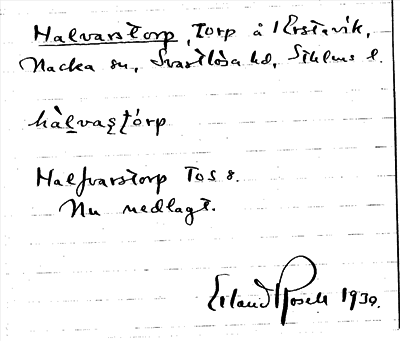 Halvarstorp, Torp å Erstavik,
Nacka sn, Svartlösa hd, Sthlms l.
hàlvaştórp
Halfvarstorp Tos 8.
Nu nedlagt.
Erland Rosell 1930.